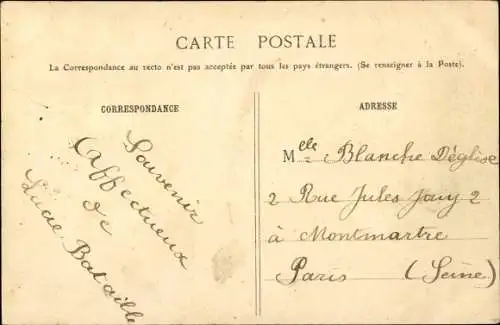 CARTE POSTALE
La Correspondance au recto n'est pas acceptée par tous les pays étrangers. (Se renseigner à la Poste).
CORRESPONDANCE
Souvenir
Affectueux
de
Lucie Bataille
ADRESSE
Mlle Blanche Déglise
2 Rue Jules Jouy 2
à Montmartre
Paris (Seine)